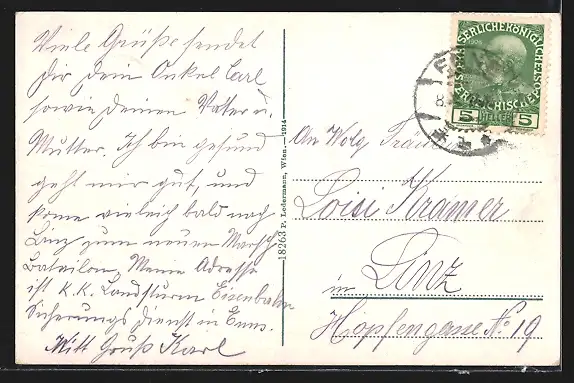 Viele Grüße sendet
Dir dein Onkel Carl
sowie deinen Vater u.
Mutter. Ich bin gesund
geht mir gut, und
kome vieleich bald nach
Linz zum neuen Marsch
Bataillon, Meine Adresse
ist K.K. Landsturm Eisenbahn
Sicherungs Dienst in Enns.
Mitt Gruß Karl
18263 P. Ledermann, Wien. — 1914
SERLICHEKÖNIGLICHE
1908
5 HELLER 5
8.
An Wolg.
Loisi Kramer
in Linz
Hopfengasse No 19